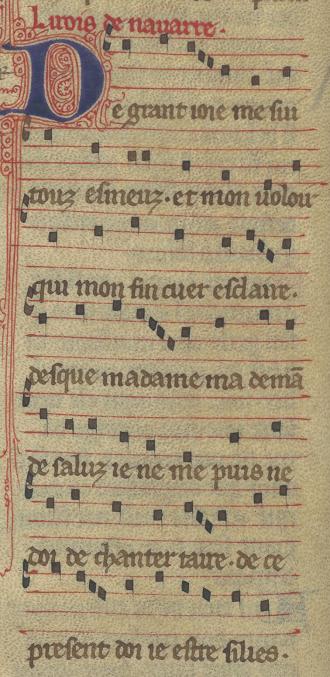 Li rois de navarre.
De grant ioie me sui
touz esmeuz. et mon uolou
qui mon fin cuer esclaire.
desque madame ma demā
de saluz ie ne me puis ne
doi de chanter taire. de ce
present doi ie estre si lies.